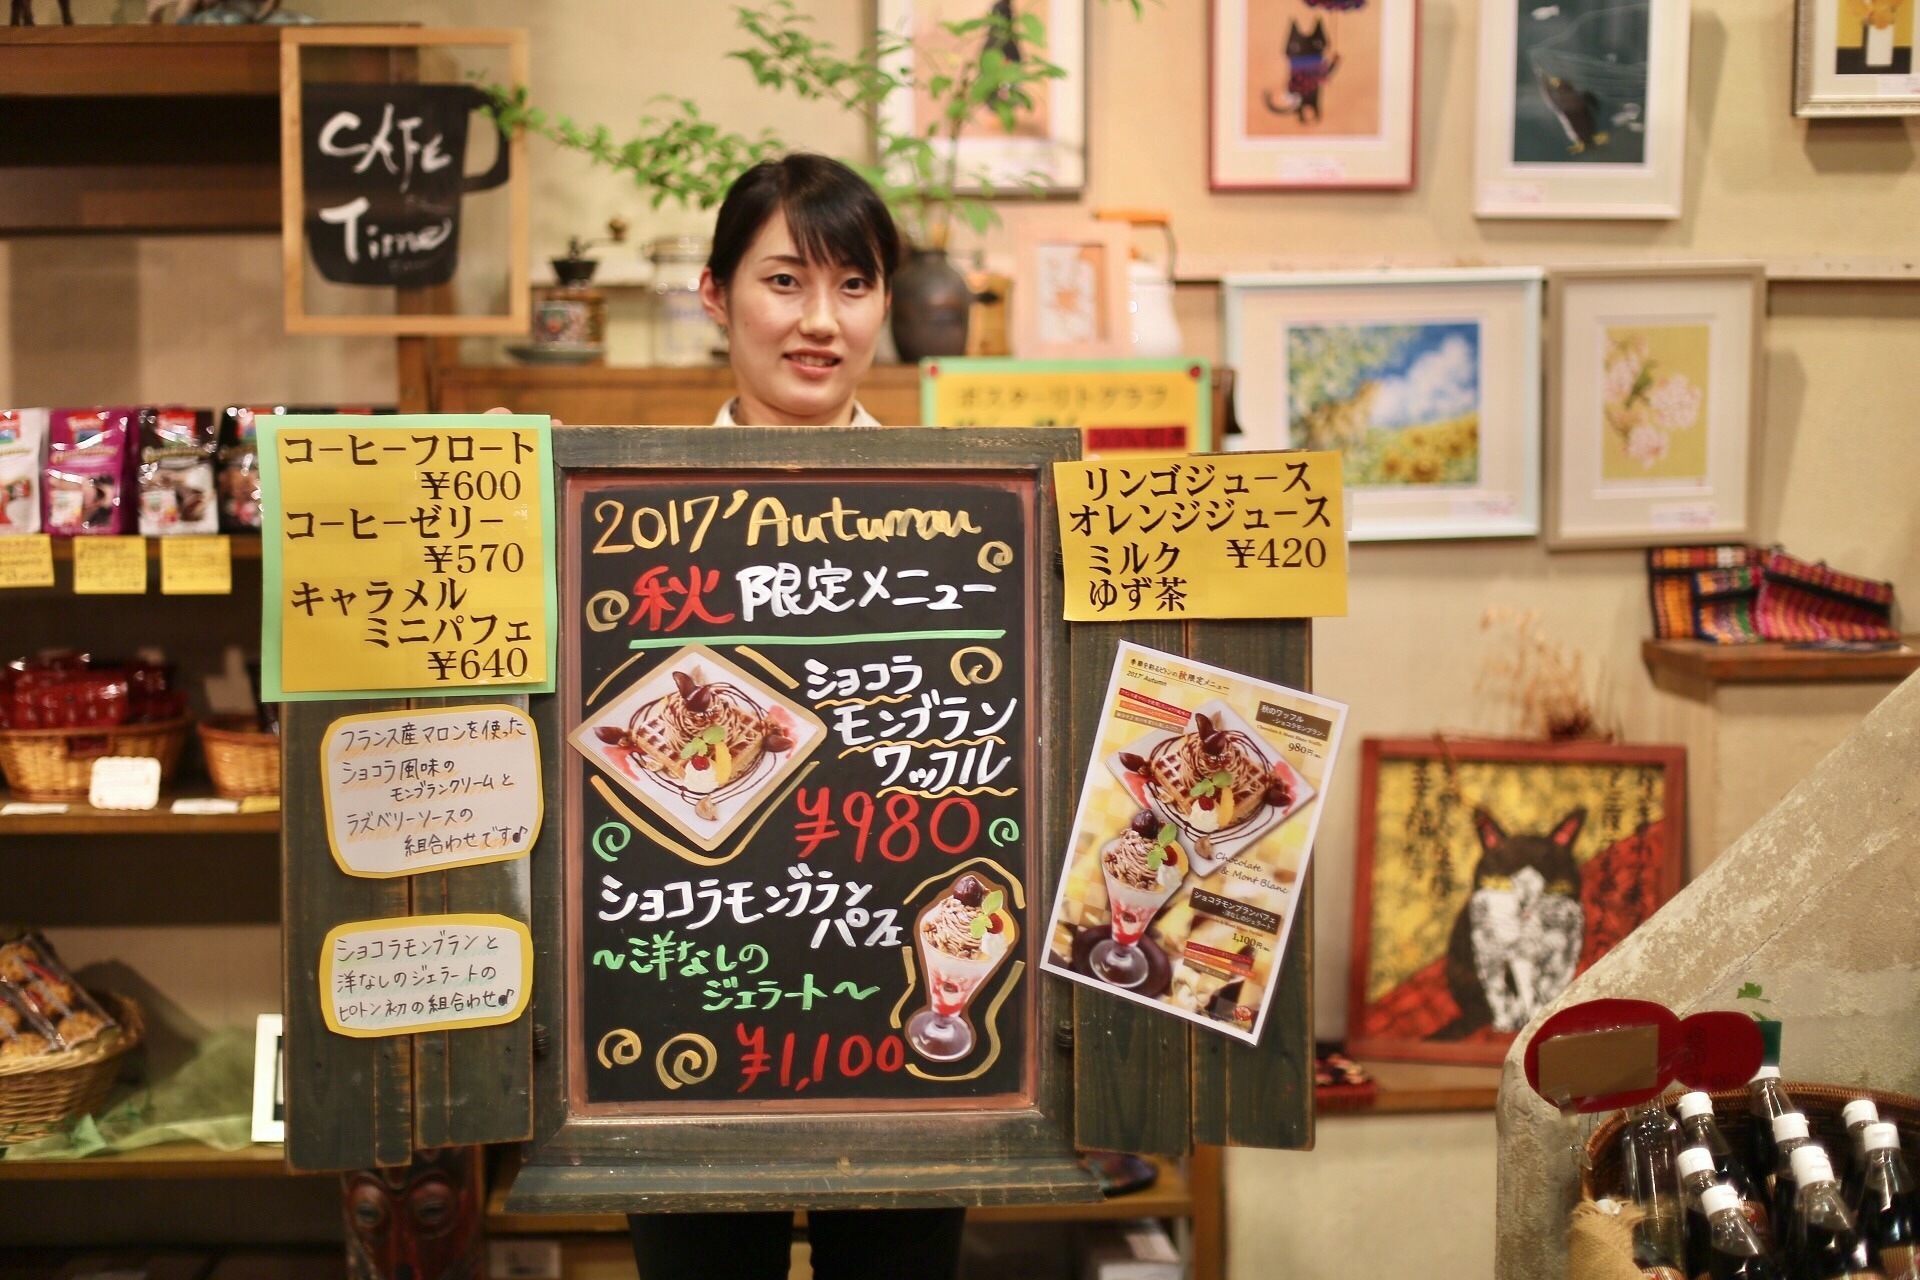 CAFE
Time
コーヒーフロート
¥600
コーヒーゼリー
¥570
キャラメル
ミニパフェ
¥640
フランス産マロンを使った
ショコラ風味の
モンブランクリームと
ラズベリーソースの
組合わせです♪
ショコラモンブランと
洋なしのジェラートの
ピトン初の組合わせ♪
2017'Autumn
秋限定メニュー
ショコラ
モンブラン
ワッフル
¥980
ショコラモンブラン
パフェ
~洋なしの
ジェラート~
¥1,100
ポスターリトグラフ
リンゴジュース
オレンジジュース
ミルク ¥420
ゆず茶
季節を彩るピトンの秋限定メニュー
2017'Autumn
秋のワッフル
-ショコラモンブラン-
980円
Chocolate
& Mont Blanc
ショコラモンブランパフェ
-洋なしのジェラート-
1,100円